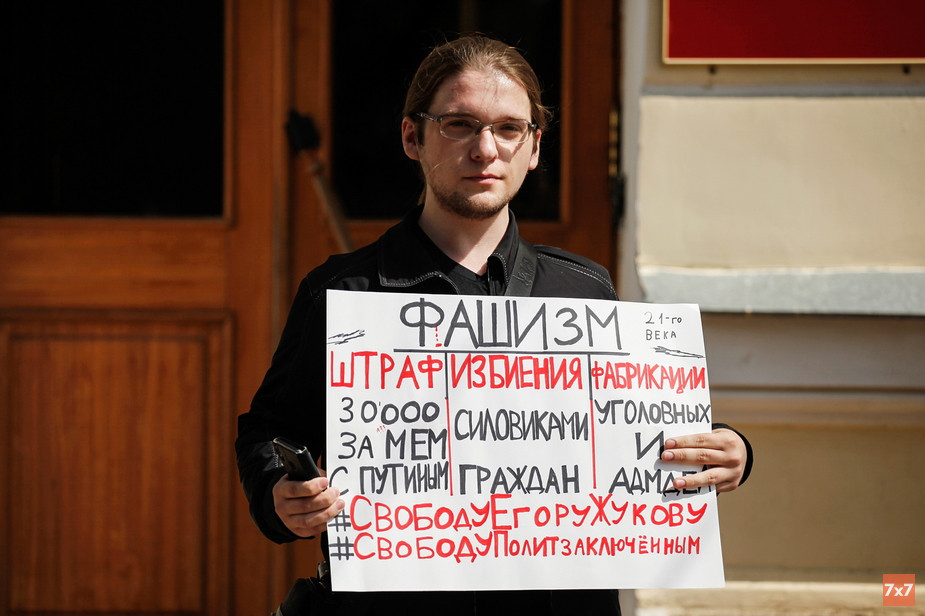 ФАШИЗМ
21-го
ВЕКА
ШТРАФ
30'000
ЗА МЕМ
С ПУТИНЫМ
ИЗБИЕНИЯ
СИЛОВИКАМИ
ГРАЖДАН
ФАБРИКАЦИИ
УГОЛОВНЫХ
И
АДМДЕЛ
#СВОБОДУЕГОРУЖУКОВУ
#СВОБОДУПОЛИТЗАКЛЮЧЁННЫМ
7x7